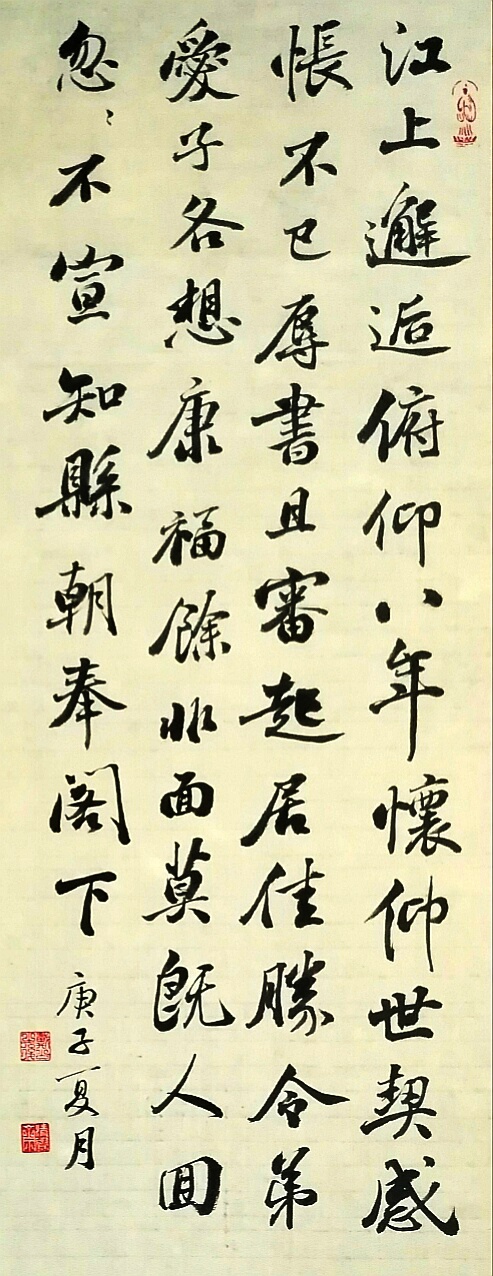 江上邂逅俯仰八年懷仰世契感
悵不已辱書且審起居佳勝令弟
愛子各想康福餘非面莫既人回
忽〻不宣知縣朝奉閣下
庚子夏月